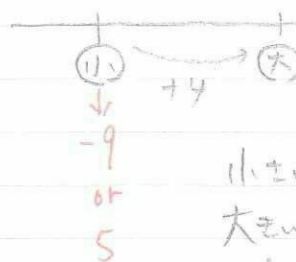 小 大
+4
-9
or
5
小さい
大きい